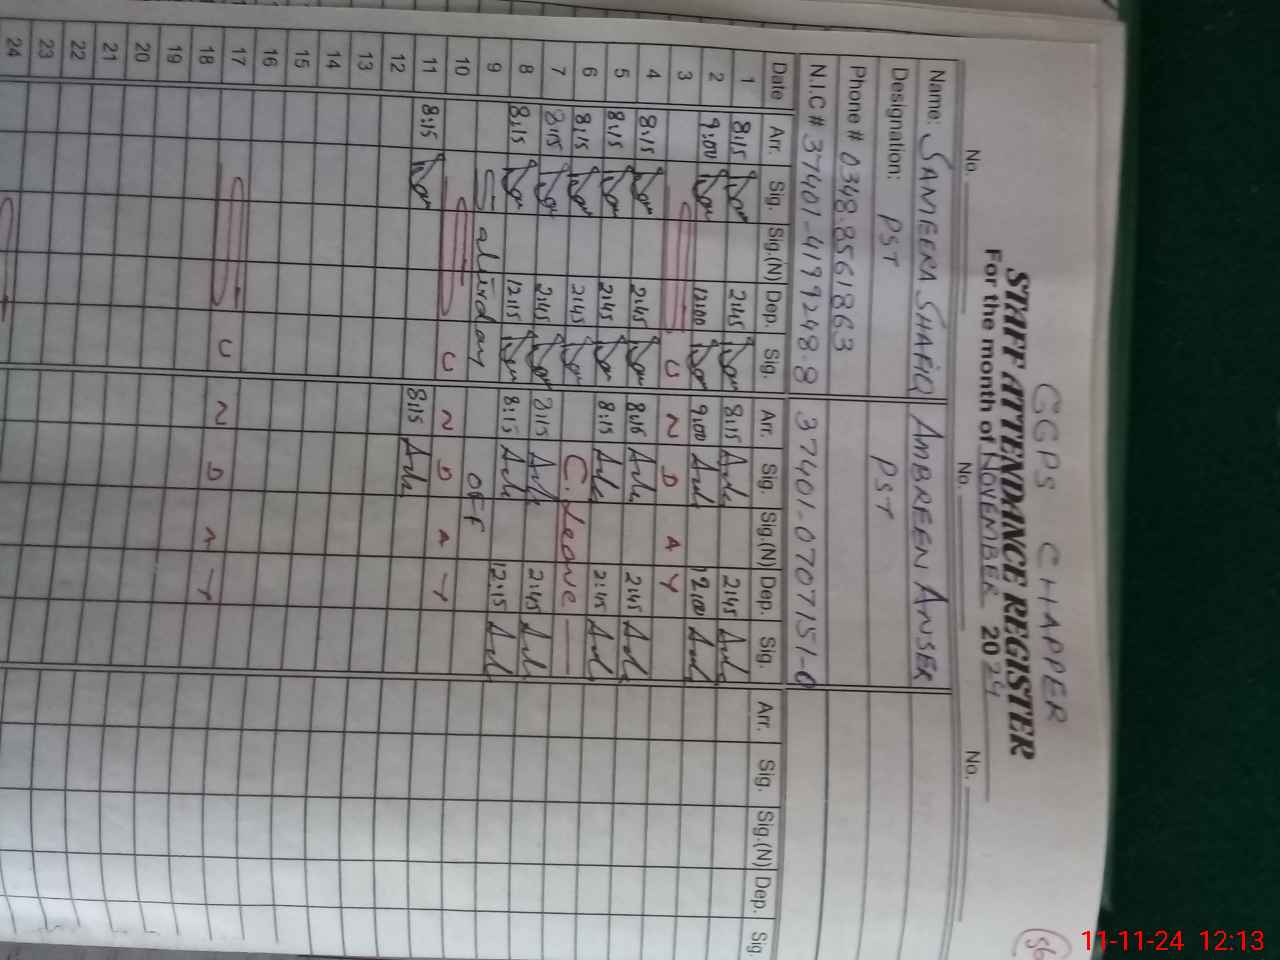 GGPS CHAPPER
STAFF ATTENDANCE REGISTER
For the month of NOVEMBER 2024
No. No. No.
Name: SAMEERA SHAFIQ AMBREEN ANSER
Designation: PST PST
Phone # 0348-8561863
N.I.C # 37401-4199248-8 37401-0707151-0
Date Arr. Sig. Sig.(N) Dep. Sig. Arr. Sig. Sig.(N) Dep. Sig. Arr. Sig. Sig.(N) Dep. Sig.
1 8:15 2:45 8:15 2:45
2 9:00 12:00 9:00 12:00
3 S U N D A Y
4 8:15 2:45 8:15 2:45
5 8:15 2:45 8:15 2:45
6 8:15 2:45 C. Leave
7 8:15 2:45 8:15 2:45
8 8:15 12:15 8:15 12:15
9 OFF
10 S U N D A Y
11 8:15 8:15
12
13
14
15
16
17 S U N D A Y
18
19
20
21
22
23
24
56
11-11-24 12:13